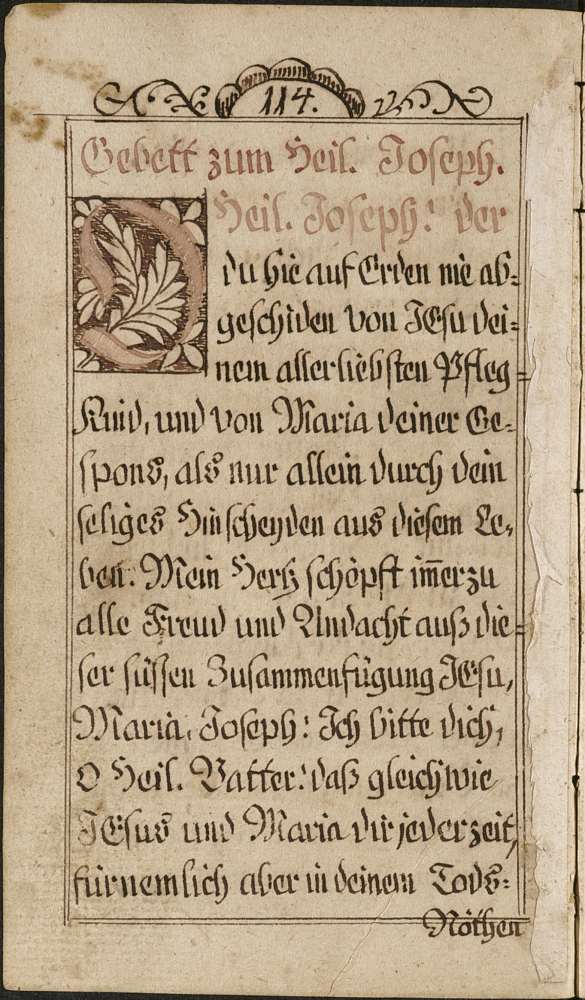 114.
Gebett zum Heil. Joseph.
O Heil. Joseph! der
du hie auf Erden nie ab-
geschiden von JEsu dei-
nem allerliebsten Pfleg-
Kind, und von Maria deiner Ge-
spons, als nur allein durch dein
seliges Hinscheyden aus diesem Le-
ben. Mein Hertz schöpft im̅erzu
alle Freud und Andacht auß die-
ser süssen Zusammenfügung JEsu,
Maria, Joseph! Ich bitte dich,
O Heil. Vatter! daß gleichwie
JEsus und Maria dir jederzeit,
fürnemlich aber in deinem Tods-
Nöthen